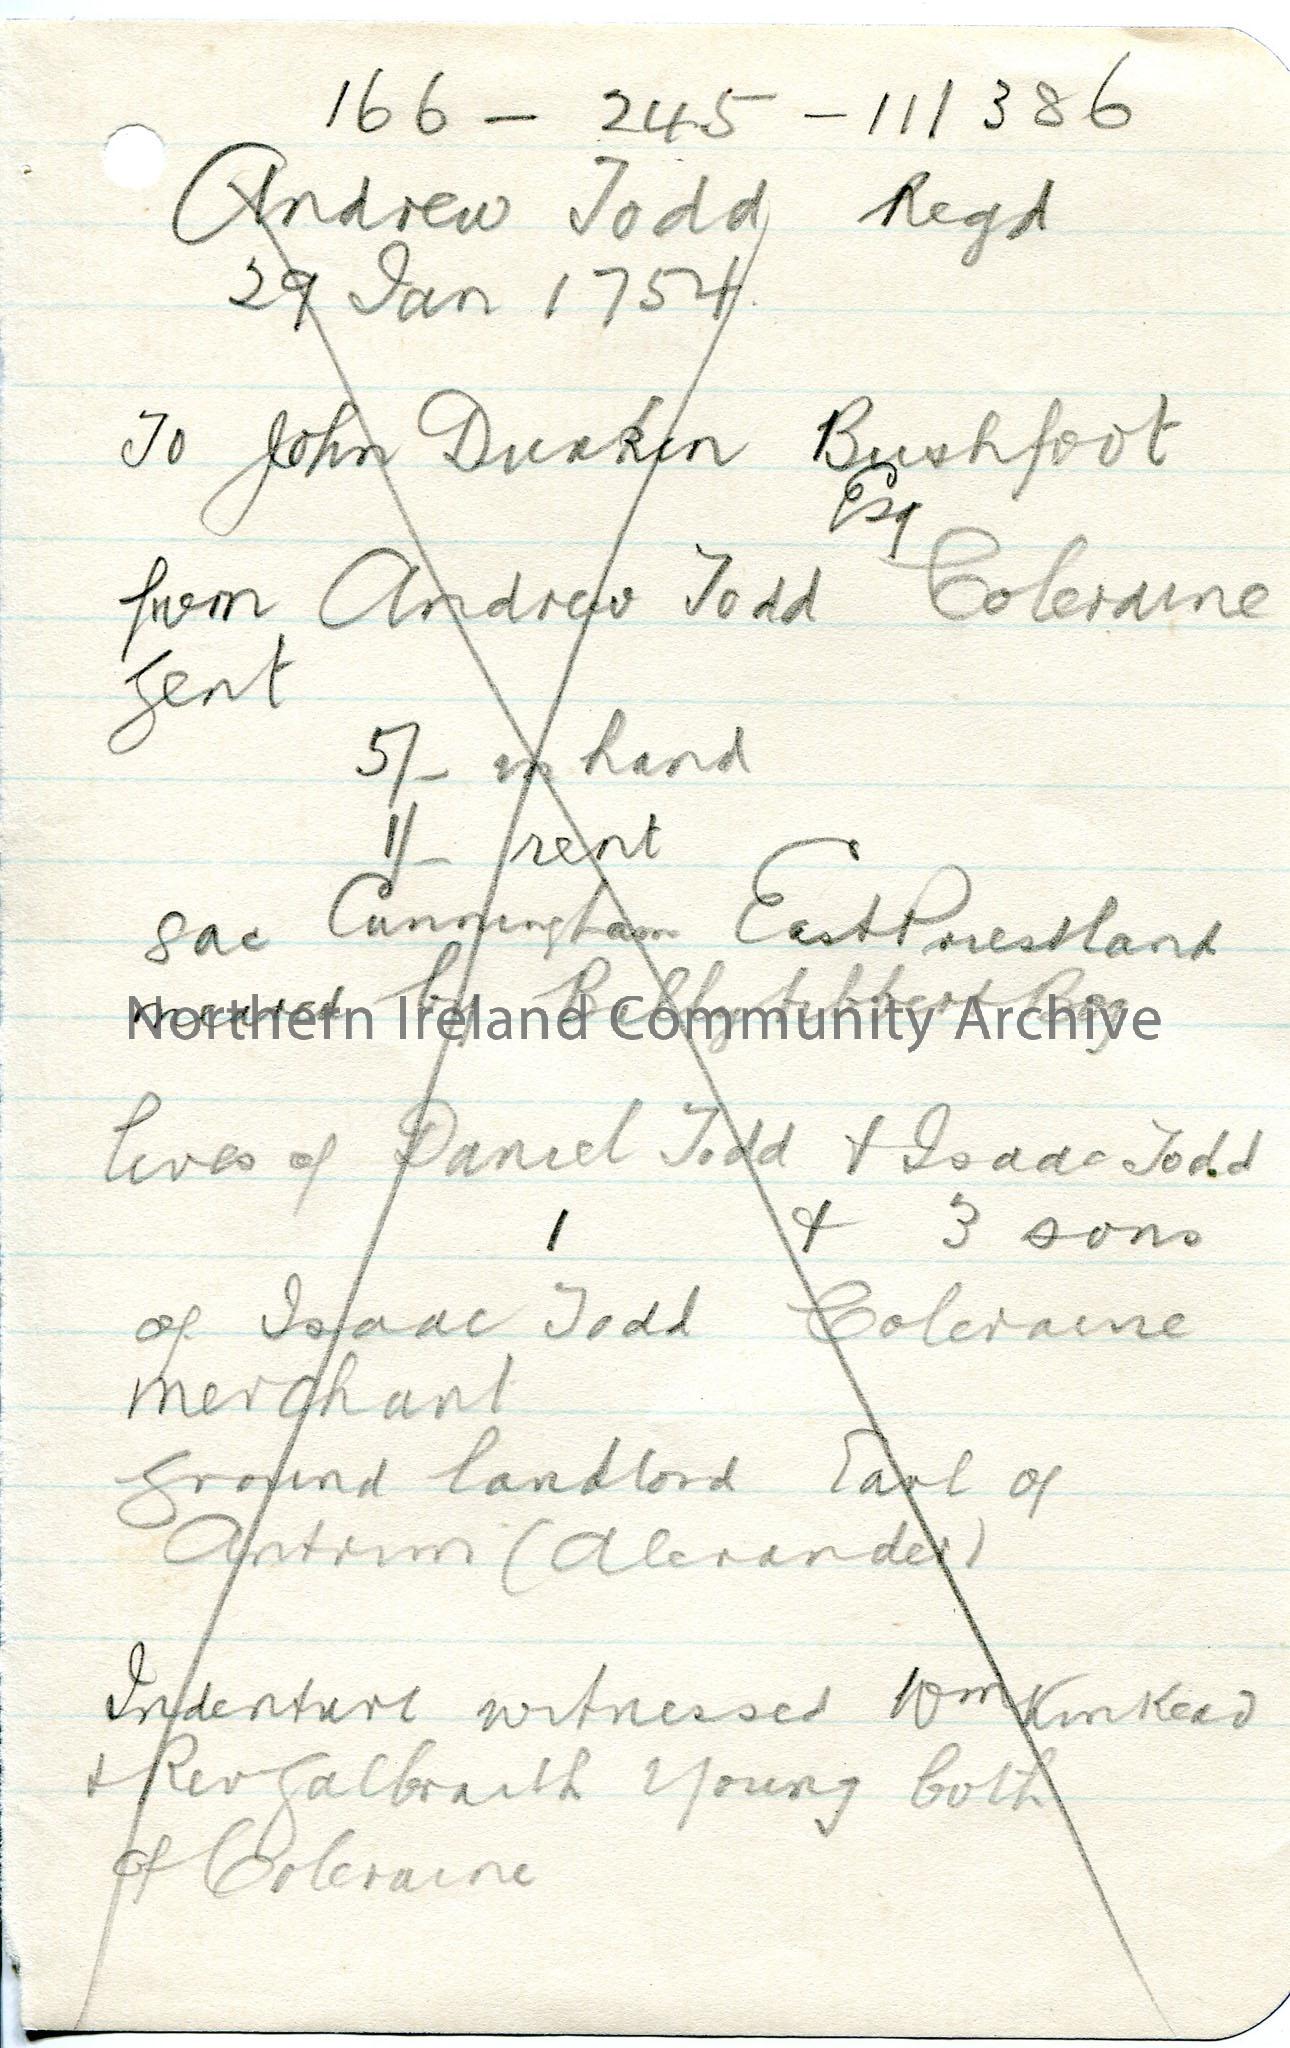 166 - 245 - 111386
Andrew Todd Regd
29 Jan 1754
To John Dunkin Bushfoot
Esq
from Andrew Todd Coleraine
gent
5/- in hand
1/- rent
8ac Cunningham East Priestland
meared by Ballytibbert Beg
Northern Ireland Community Archive
lives of Daniel Todd & Isaac Todd
1 & 3 sons
of Isaac Todd Coleraine
merchant
ground landlord Earl of
Antrim (Alexander)
Indenture witnessed Wm Kinkead
& Rev Galbraith Young both
of Coleraine